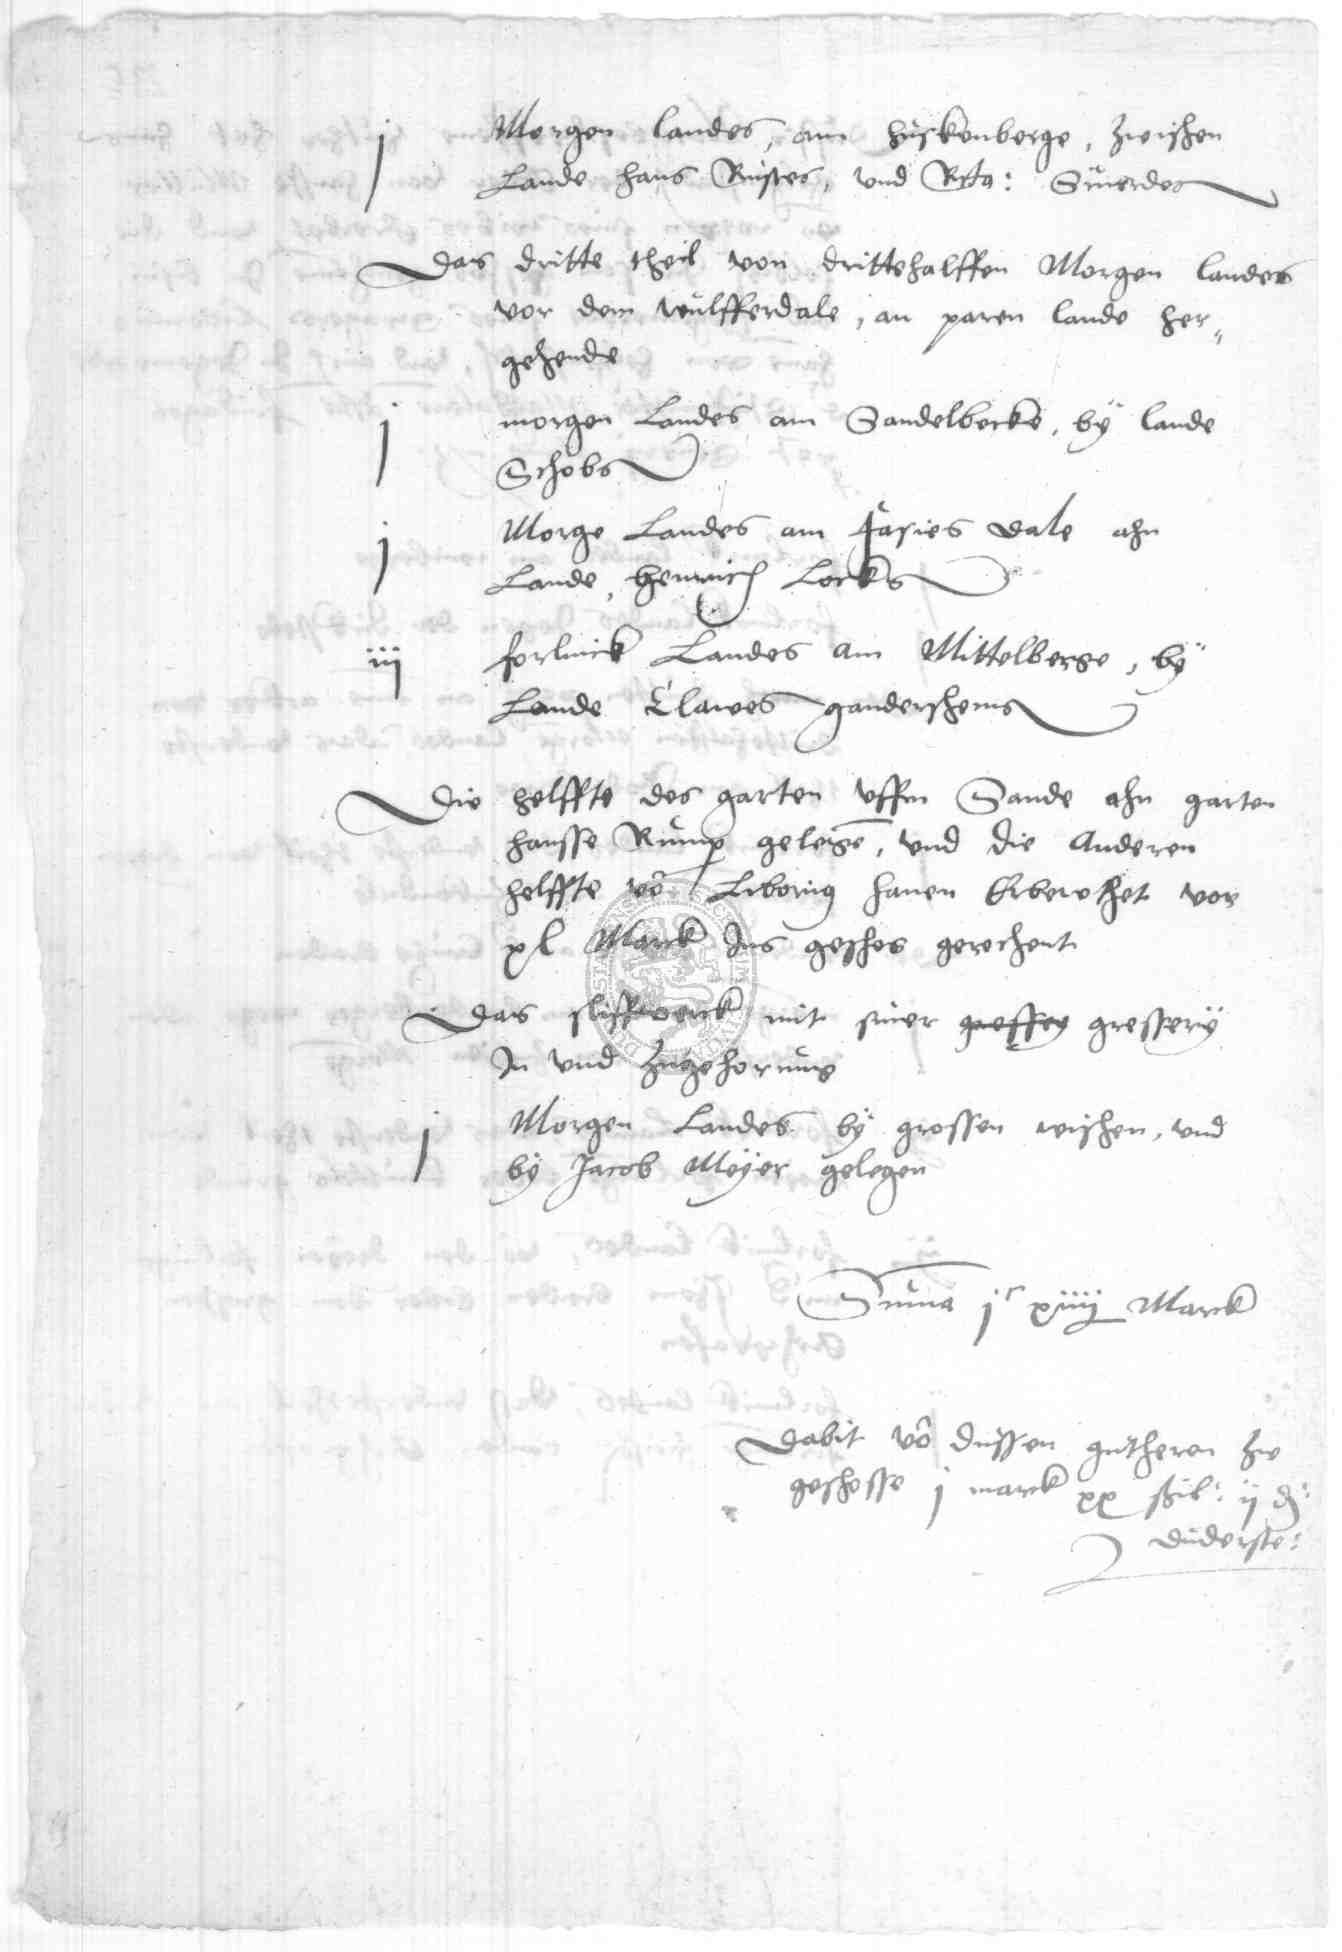 j Morgen landes, am huskenberge, zwischen
Lande hans Rustes, und Swerdes
Das dritte theil von drittehalffen Morgen landes
vor dem wulfferdale, an paren lande her„
gehende
j morgen Landes am Sandelbecke, by lande
Schobs
j Morge Landes am dale ahn
Lande, henrich Locks
iij forlinck Landes am Mittelberge, by
Lande Clawes gandershems
Die helffte des garten uffm Sande ahn garten
hansse Rump gelegē, und die Anderen
helffte vō hanen vor
xl Marck Ins geschos gerechent
Das sliffwerck mit siner
In und zugehorung
j Morgen Landes by grossen wishen, und
by Jacob Meyer gelegen
Suma jc xiiij Marck
Dabit vō dussen gutheren zw
geschosse j marck xx schil: ij d:
duderste: